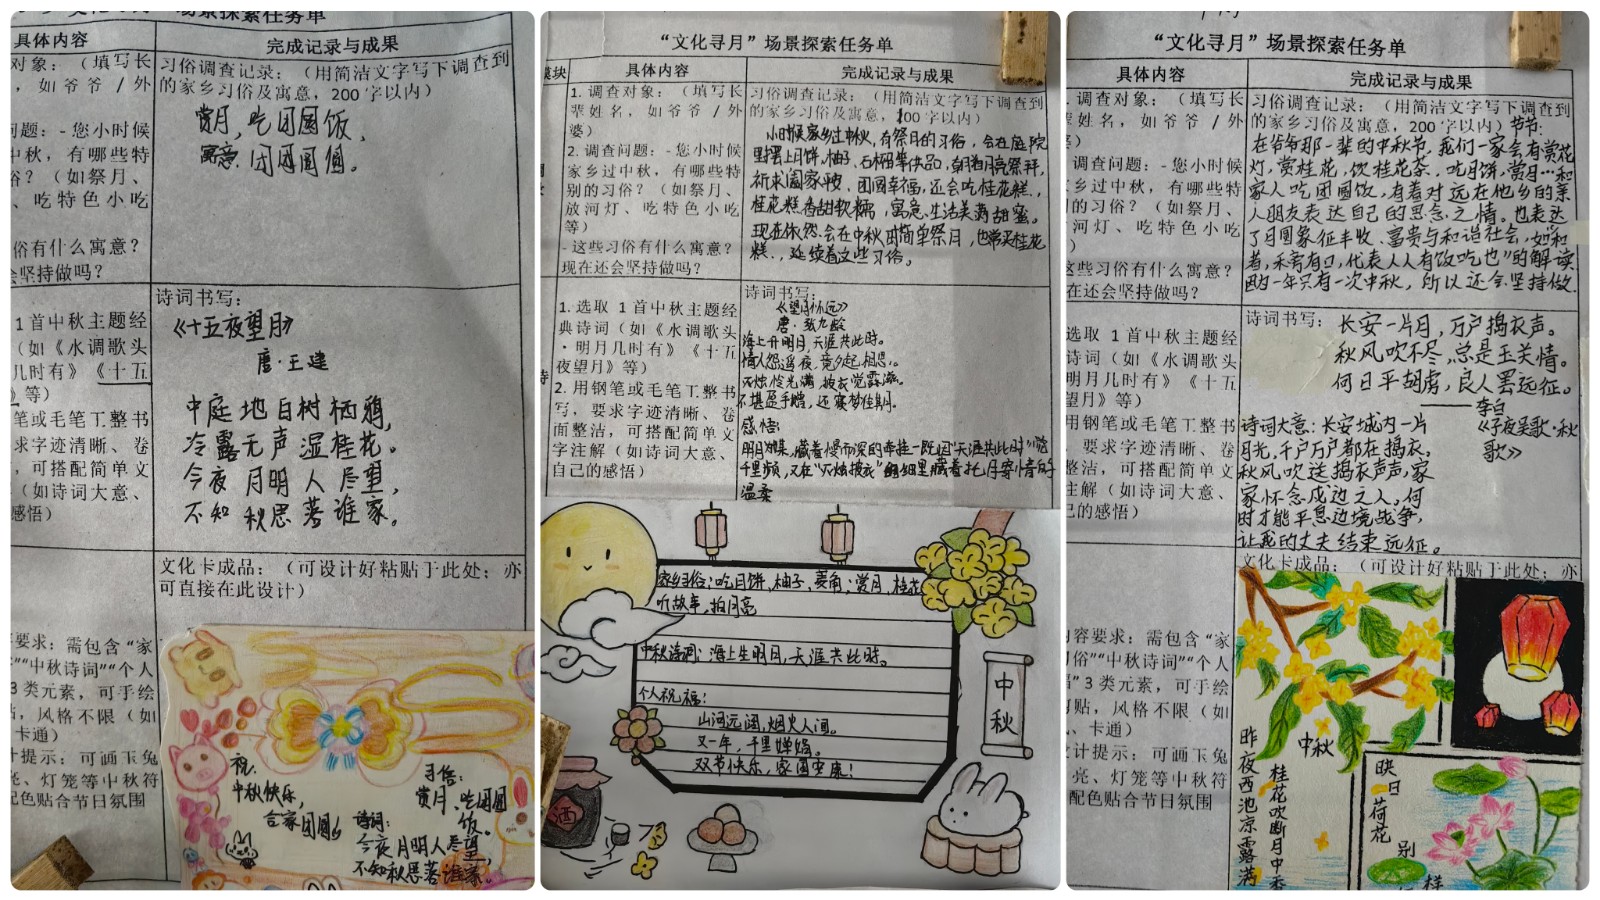 场景探索任务单
具体内容
完成记录与成果
对象：（填写长
，如爷爷/外
问题：-您小时候
中秋，有哪些特
俗？（如祭月、
、吃特色小吃
俗有什么寓意？
会坚持做吗？
习俗调查记录：（用简洁文字写下调查到
的家乡习俗及寓意，200字以内）
赏月，吃团圆饭，
寓意，团团圆圆。
1首中秋主题经
（如《水调歌头
几时有》《十五
》等）
笔或毛笔工整书
求字迹清晰、卷
，可搭配简单文
（如诗词大意、
感悟）
诗词书写：
《十五夜望月》
唐·王建
中庭地白树栖鸦，
冷露无声湿桂花。
今夜月明人尽望，
不知秋思落谁家。
要求：需包含“家
”“中秋诗词”“个人
3类元素，可手绘
，风格不限（如
卡通）
计提示：可画玉兔
、灯笼等中秋符
配色贴合节日氛围
文化卡成品：（可设计好粘贴于此处；亦
可直接在此设计）
祝：
中秋快乐，
合家团圆
习俗：
赏月、吃团圆
饭。
诗词：
今夜月明人尽望，
不知秋思落谁家。
“文化寻月”场景探索任务单
模块
具体内容
完成记录与成果
1. 调查对象：（填写长
辈姓名，如爷爷/外
婆）
2. 调查问题：-您小时候
家乡过中秋，有哪些特
别的习俗？（如祭月、
放河灯、吃特色小吃
等）
-这些习俗有什么寓意？
现在还会坚持做吗？
习俗调查记录：（用简洁文字写下调查到
的家乡习俗及寓意，200字以内）
小时候家乡过中秋，有祭月的习俗，会在庭院
里摆上月饼、柚子、石榴等供品，朝着月亮祭拜，
祈求阖家平安、团圆幸福，还会吃桂花糕，
桂花糕香甜软糯，寓意生活美满甜蜜。
现在依然会在中秋时简单祭月，也常买桂花
糕，延续着这些习俗。
1. 选取1首中秋主题经
典诗词（如《水调歌头
·明月几时有》《十五
夜望月》等）
2. 用钢笔或毛笔工整书
写，要求字迹清晰、卷
面整洁，可搭配简单文
字注解（如诗词大意、
自己的感悟）
诗词书写：
《望月怀远》
唐·张九龄
海上升明月，天涯共此时。
情人怨遥夜，竟夕起相思。
灭烛怜光满，披衣觉露滋。
不堪盈手赠，还寝梦佳期。
感悟：
藏着慢而深的牵挂—既因“天涯共此时”
千里频，又在“灭烛披衣”细细里藏着托月寄情的
温柔
家乡习俗：吃月饼、柚子、菱角；赏月、桂花
听故事，拍月亮
中秋诗词：海上生明月，天涯共此时。
个人祝福：
山河远阔，烟火人间。
又一年，千里婵娟。
双节快乐，家国安康！
中秋
酒
“文化寻月”场景探索任务单
具体内容
完成记录与成果
调查对象：（填写长
辈姓名，如爷爷/外
调查问题：-您小时候
乡过中秋，有哪些特
的习俗？（如祭月、
河灯、吃特色小吃
）
这些习俗有什么寓意？
在还会坚持做吗？
习俗调查记录：（用简洁文字写下调查到
的家乡习俗及寓意，200字以内）节节：
在爷爷那一辈的中秋节，我们一家会有赏花
灯，赏桂花，饮桂花茶，吃月饼，赏月…和
家人吃团圆饭，有着对远在他乡的亲
人朋友表达自己的思念之情。也表达
了月圆象征丰收、富贵与和谐社会，如和
者，禾旁有口，代表人人有饭吃也”的解读
因为一年只有一次中秋，所以还会坚持做
选取1首中秋主题经
诗词（如《水调歌头
明月几时有》《十五
望月》等）
用钢笔或毛笔工整书
，要求字迹清晰、卷
整洁，可搭配简单文
注解（如诗词大意、
己的感悟）
诗词书写：
长安一片月，万户捣衣声。
秋风吹不尽，总是玉关情。
何日平胡虏，良人罢远征。
——李白
《子夜吴歌·秋
歌》
诗词大意：长安城内一片
月光，千户万户都在捣衣，
秋风吹送捣衣声声，家
家怀念戍边之人，何
时才能平息边境战争，
让我的丈夫结束远征。
内容要求：需包含“家
习俗”“中秋诗词”“个人
”3类元素，可手绘
剪贴，风格不限（如
、卡通）
计提示：可画玉兔
亮、灯笼等中秋符
配色贴合节日氛围
文化卡成品：（可设计好粘贴于此处；亦
中秋
昨夜西池凉露满
桂花吹断月中香
映日荷花
别
样